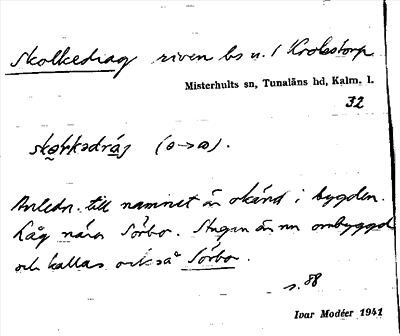 Skolkedrag riven bs u. / Krokstorp
Misterhults sn, Tunaläns hd, Kalm. l.
32
(o→ω).
Anledn. till namnet är okänd i bygden.
Låg nära Sörbo. Stugan är nu ombyggd
och kallas också Sörbo.
s. 88
Ivar Modéer 1941